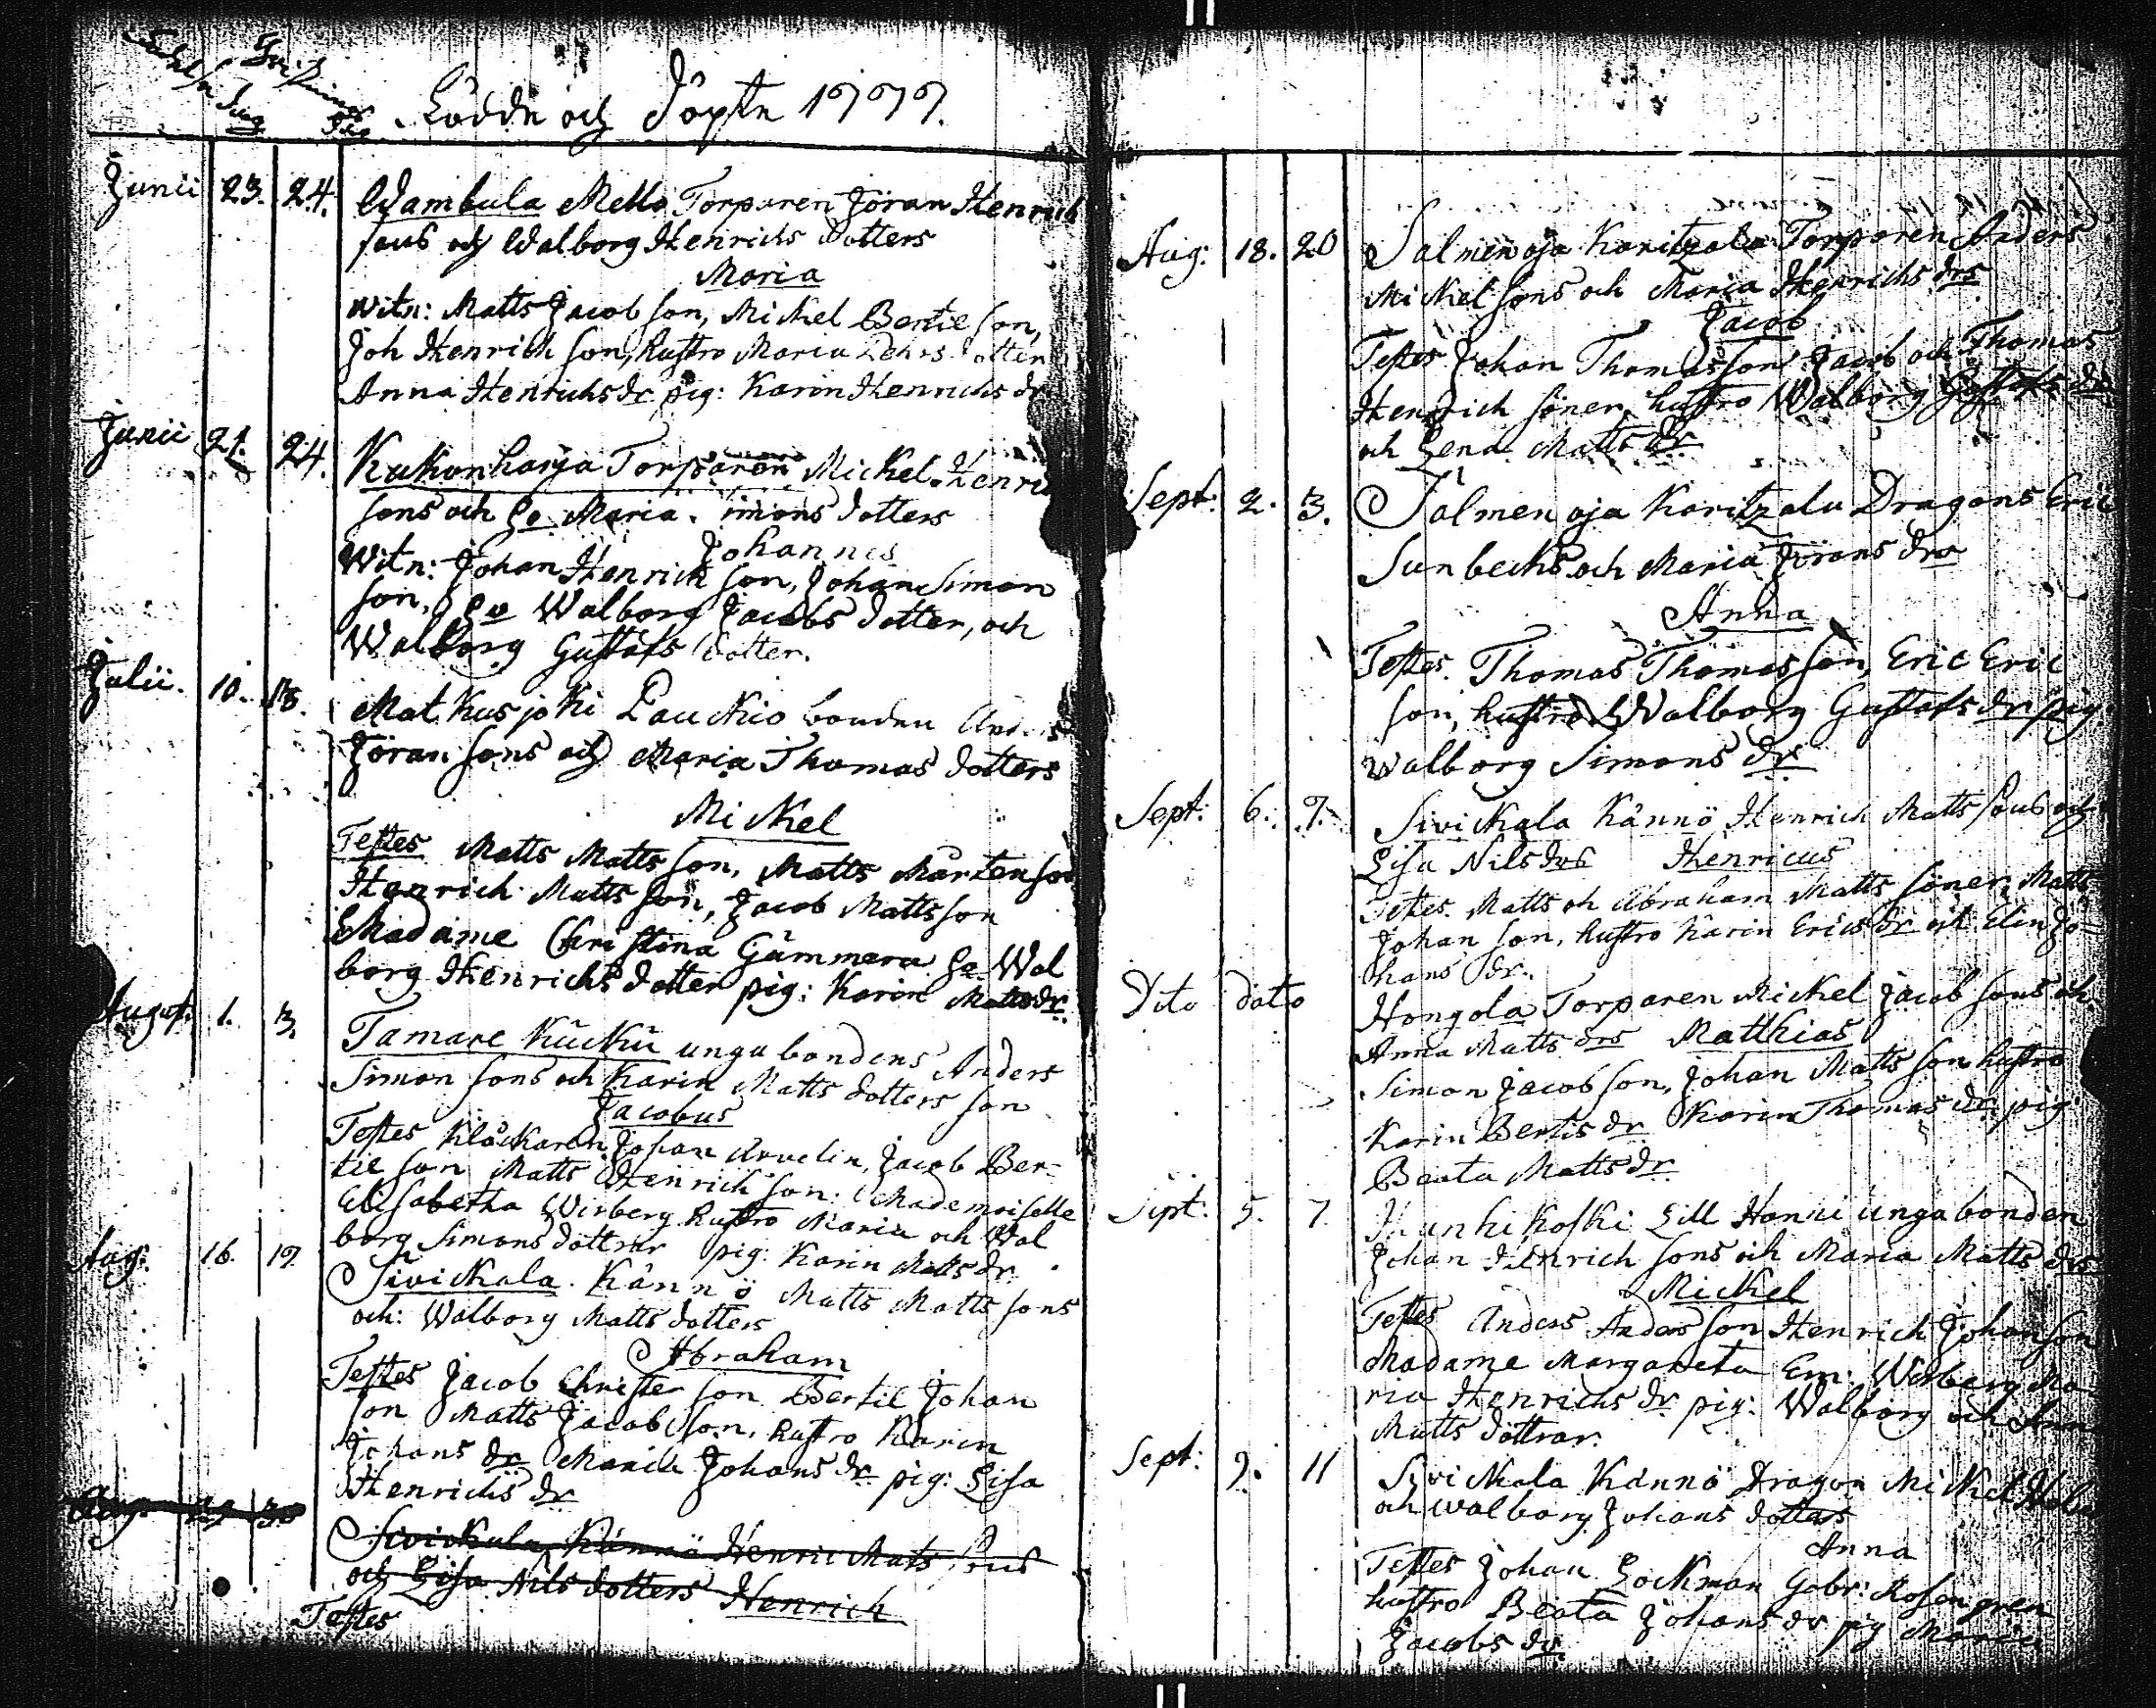 Födde och Döpte 1777.
Junii 23. 24. Wambula Mello Torparen Jöran Henrich
sons och Walborg Henrichs dotters
Maria
Witn: Matts Jacob son, Mickel Bertil son,
Joh Henrich son, hustro Maria dotter
Anna Henrichs dr pig: Karin Henrichs dr
Junii 21. 24. Kukonharja Torparen Mickel Henri
sons och Maria Simons dotters
Johannes
Witn: Johan Henrich son, Johan Simon
son, Walborg Jacobs dotter, och
Walborg Gustafs dotter.
Julii. 10. 13. Matkusjoki Pauckio bonden Anders
Jöran sons och Maria Thomas dotters
Mickel
Testes Matts Matts son, Matts Mårten son
Henrich Matts son, Jacob Matts son
Madame Christina Gammera Wal
borg Henrichs dotter pig: Karin Matts dr
August. 1. 3. Tamare Kückü unga bondens Anders
Simon sons och Karin Matts dotters son
Jacobus
Testes Klåckaren Johan Arvelin, Jacob Ber-
til son Matts Henrich son. Mademoiselle
Elisabetha Wirberg hustro Maria och Wal
borg Simons dottrar pig: Karin Matts dr
Aug: 16. 17. Sivickala Kännö Matts Matts sons
och: Walborg Matts dotters
Abraham
Testes Jacob Christer son Bertil Johan
son Matts Jacob son, hustro Karin
Johans dr Maria Johans dr pig: Lisa
Henrichs dr
Aug. Sivickala Kännö Henric Mats sons
och Lisa Nils dotters Henrich
Testes
Aug: 18. 20 Salmenoja Karitzala Torparen Anders
Mickel sons och Maria Henrichs drs
Jacob
Testes Johan Thomas son Jacob och Thomas
Henrich söner, hustro Walborg Gustafs dr
och Lena Matts dr
Sept: 2. 3. Salmenoja Karitzala Dragons Eric
Sunbecks och Maria Jörans drs
Anna
Testes. Thomas Thomas son, Eric Eric
son, hustro Walborg Gustafs dr pig
Walborg Simons dr
Sept: 6. 7. Sivickala Kännö Henrich Matts sons och
Lisa Nils drs Henricus
Testes. Matts och Abraham Matts söner, Matts
Johan son, hustro Karin Erics dr och Elin Jo-
hans dr.
Dito dato Hongola Torparen Mickel Jacob sons och
Anna Matts drs Matthias
Simon Jacob son, Johan Matts son hustro
Karin Bertils dr Karin Thomas dr pig
Beata Matts dr
Sept: 5. 7. Kunhikoski Lill Honni unga bonden
Johan Henrich sons och Maria Matts drs
Mickel
Testes Anders Anders son Henrich Johan son
Madame Margareta Em: Wirberg Ma-
ria Henrichs dr pig: Walborg och Anna
Matts döttrar.
Sept: 9. 11 Sivickala Kännö Dragon Mickel
och Walborg Johans dotters
Anna
Testes Johan Lockman Gabr: Rosengren
hustro Beata Johans dr pig Maria
Jacobs dr.